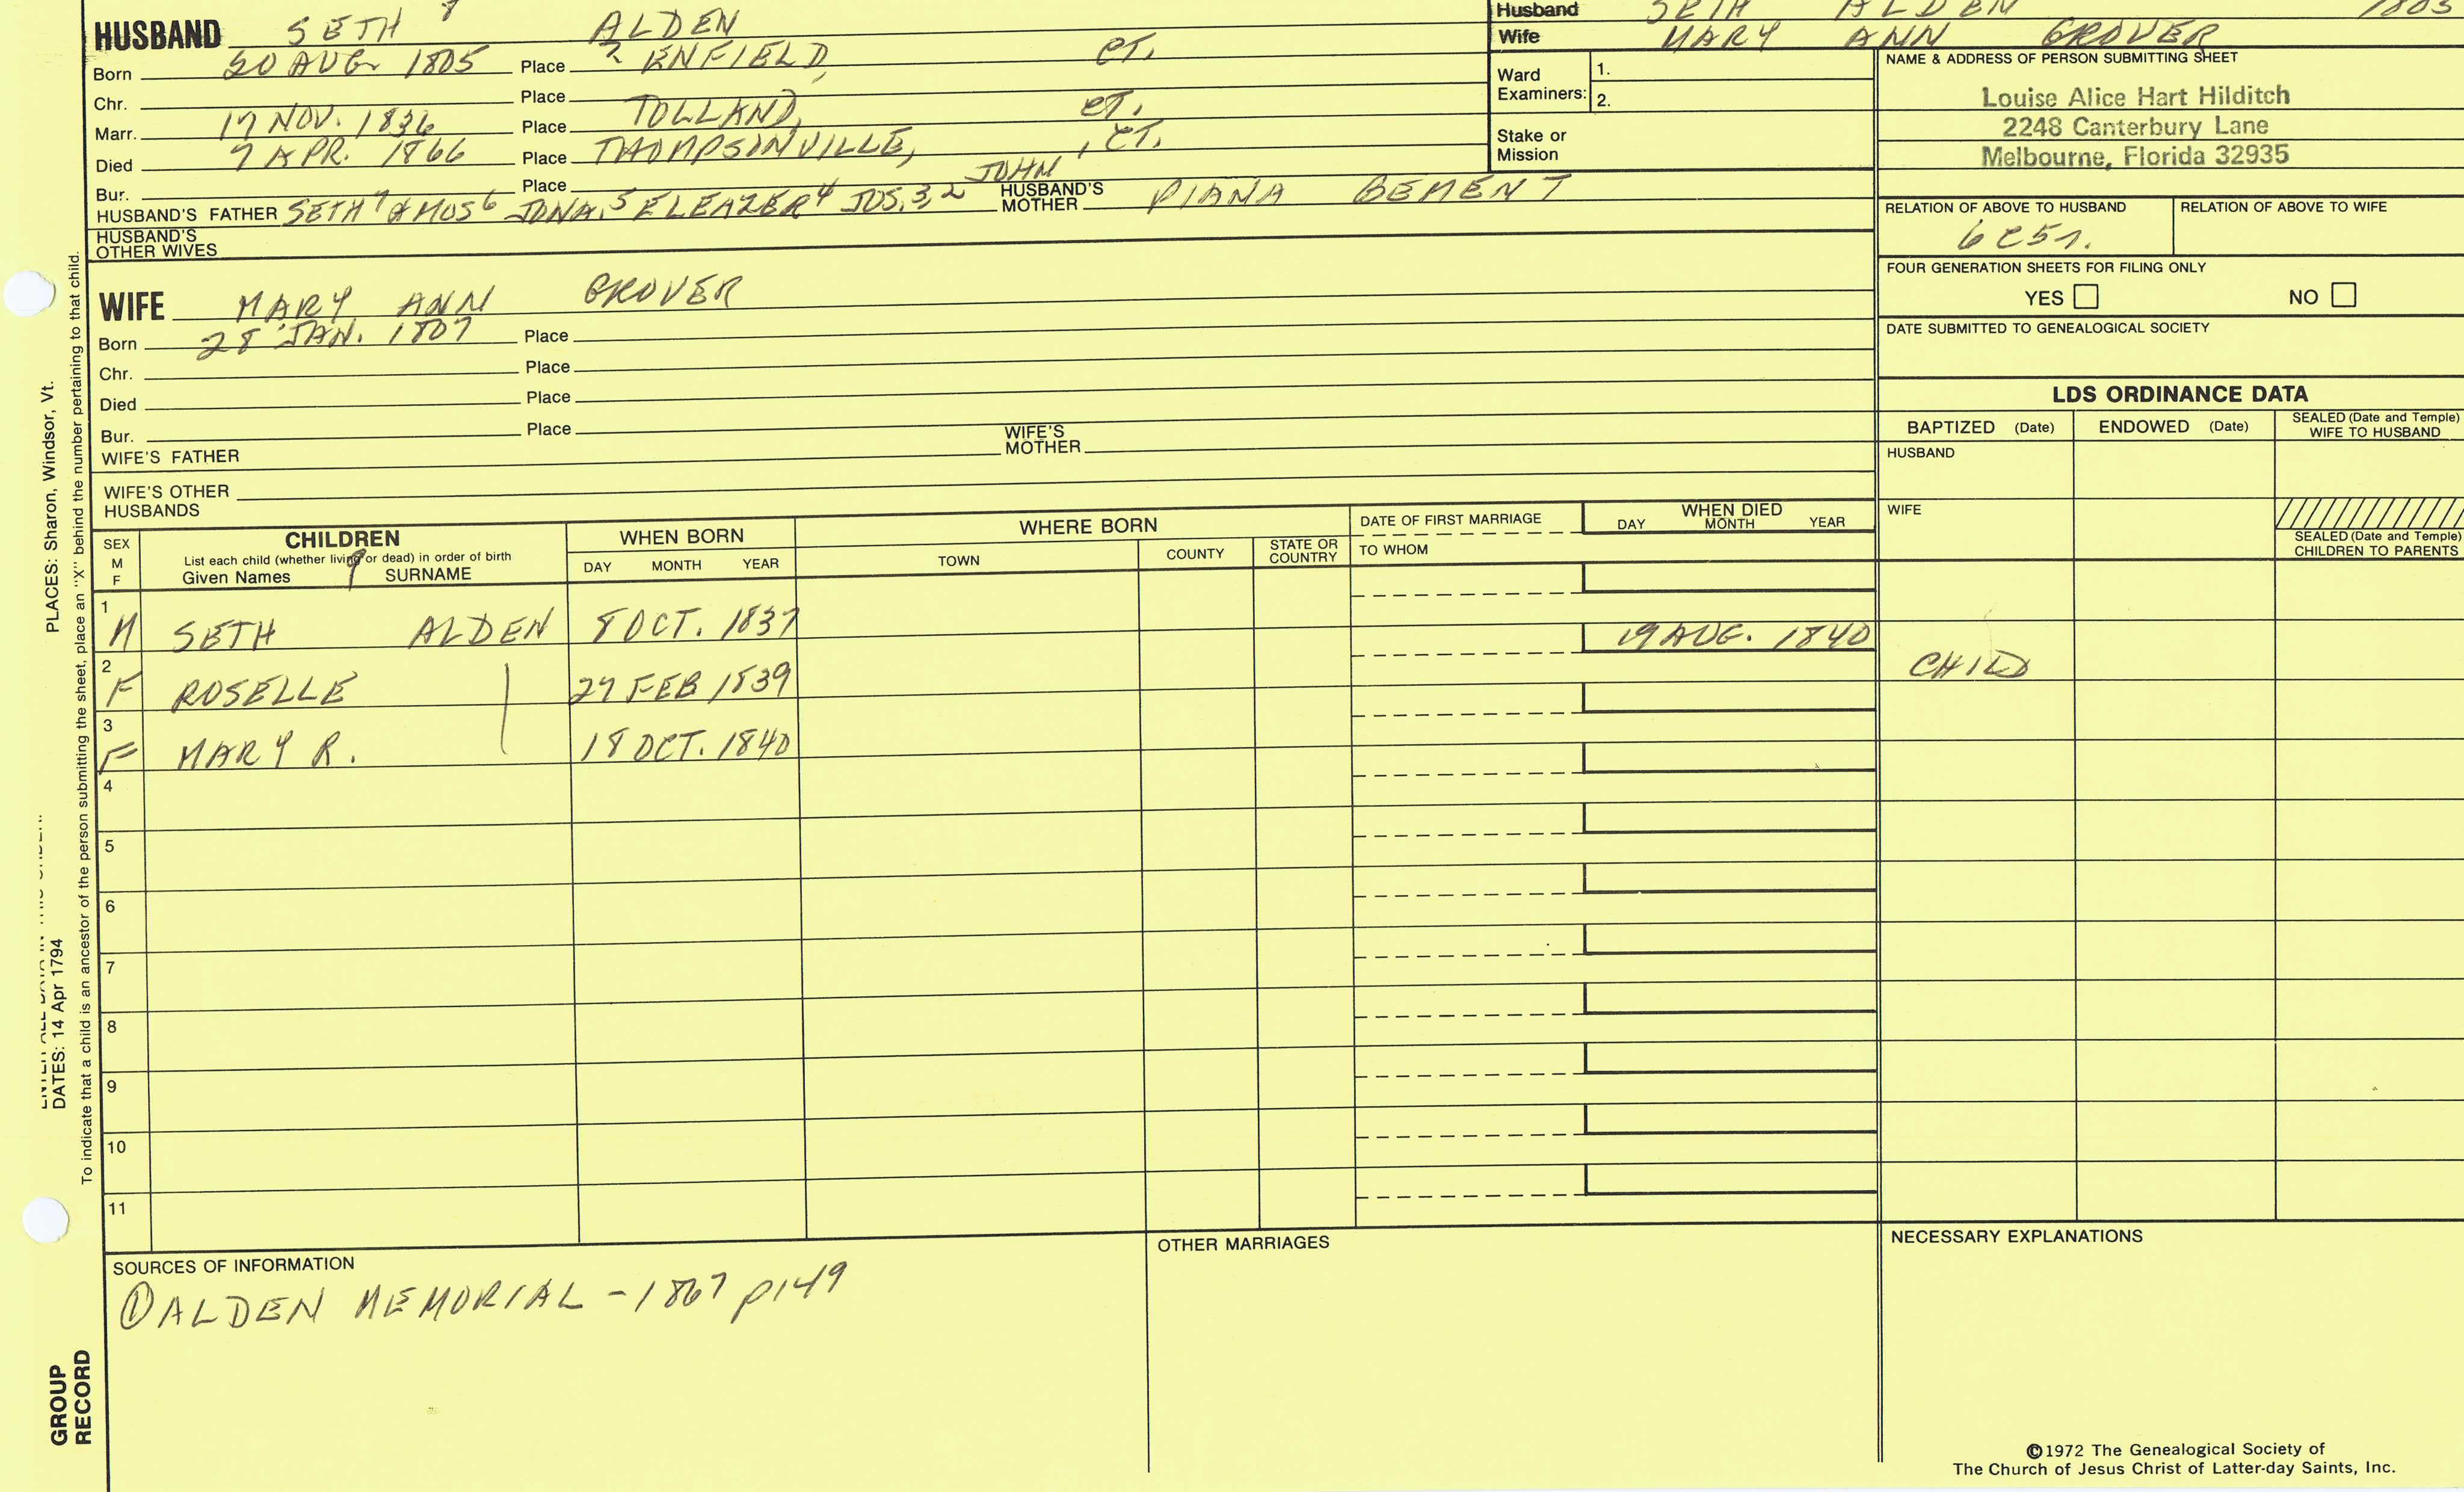 HUSBAND SETH 8 ALDEN
Born 20 AUG. 1805 Place ? ENFIELD, CT.
Chr. Place
Marr. 17 NOV. 1836 Place TOLLAND, CT.
Died 7 APR. 1866 Place THOMPSINVILLE, CT.
Bur. Place
HUSBAND'S FATHER SETH 7 AMOS 6 JONA. 5 ELEAZER 4 JOS. 3,2 JOHN 1 HUSBAND'S MOTHER DIANA BEMENT
HUSBAND'S OTHER WIVES
WIFE MARY ANN GROVER
Born 28 JAN. 1807 Place
Chr. Place
Died Place
Bur. Place
WIFE'S FATHER WIFE'S MOTHER
WIFE'S OTHER HUSBANDS
Husband SETH ALDEN 1805
Wife MARY ANN GROVER
Ward Examiners: 1.
2.
Stake or Mission
NAME & ADDRESS OF PERSON SUBMITTING SHEET
Louise Alice Hart Hilditch
2248 Canterbury Lane
Melbourne, Florida 32935
RELATION OF ABOVE TO HUSBAND RELATION OF ABOVE TO WIFE
6C5r.
FOUR GENERATION SHEETS FOR FILING ONLY
YES NO
DATE SUBMITTED TO GENEALOGICAL SOCIETY
LDS ORDINANCE DATA
BAPTIZED (Date) ENDOWED (Date) SEALED (Date and Temple)
WIFE TO HUSBAND
HUSBAND
WIFE
SEALED (Date and Temple)
CHILDREN TO PARENTS
SEX M F
CHILDREN
List each child (whether living or dead) in order of birth
Given Names 9 SURNAME
WHEN BORN
DAY MONTH YEAR
WHERE BORN
TOWN COUNTY STATE OR COUNTRY
DATE OF FIRST MARRIAGE
TO WHOM
WHEN DIED
DAY MONTH YEAR
1 M SETH ALDEN 8 OCT. 1837
19 AUG. 1840
2 F ROSELLE 27 FEB 1839 CHILD
3 F MARY R. 18 OCT. 1840
4
5
6
7
8
9
10
11
SOURCES OF INFORMATION
① ALDEN MEMORIAL - 1867 p149
OTHER MARRIAGES
NECESSARY EXPLANATIONS
©1972 The Genealogical Society of
The Church of Jesus Christ of Latter-day Saints, Inc.
PLACES: Sharon, Windsor, Vt.
DATES: 14 Apr 1794
To indicate that a child is an ancestor of the person submitting the sheet, place an "X" behind the number pertaining to that child.
GROUP
RECORD